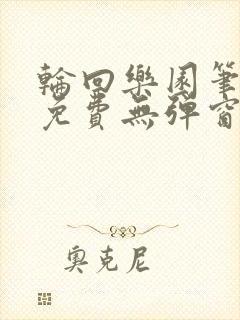 輪回樂園筆
免費無彈窗
奧克尼